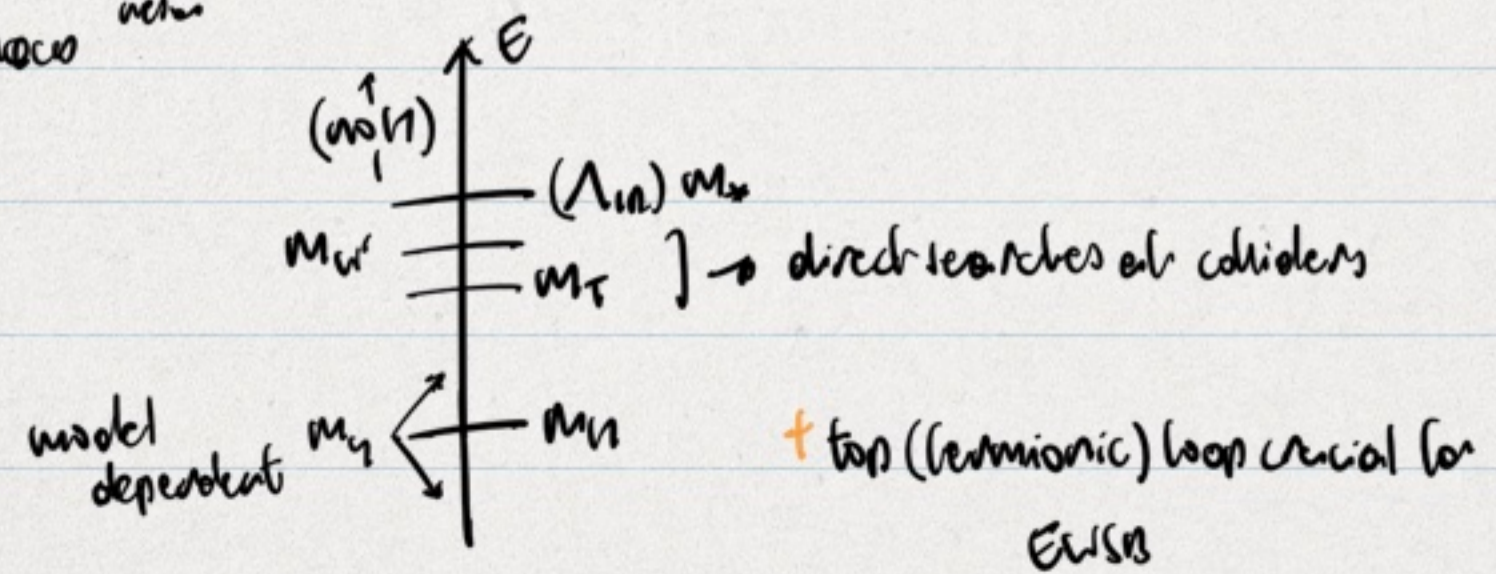 E
(Λ_IR) m_*
m_W'
m_T ] → direct searches at colliders
model m_η m_H
dependent
+ top (fermionic) loop crucial for
EWSB